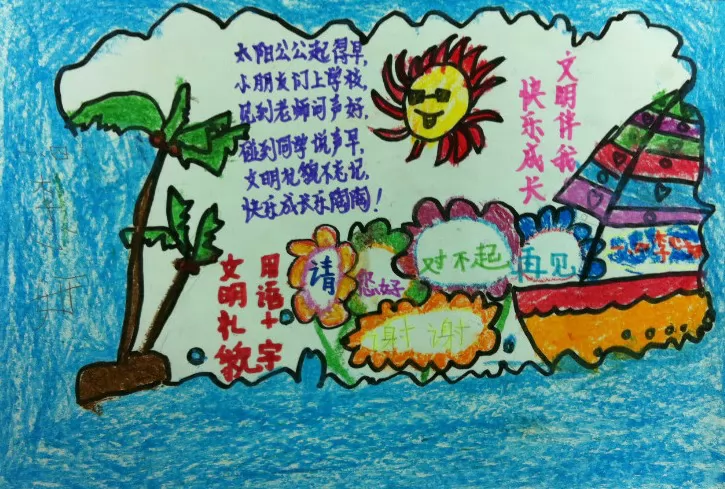 太阳公公起得早,
小朋友们上学校,
见到老师问声好,
碰到同学说声早,
文明礼貌不忘记,
快乐成长乐陶陶!
文明伴我
快乐成长
文明礼貌
用语十字
请
您好
对不起
再见
谢谢